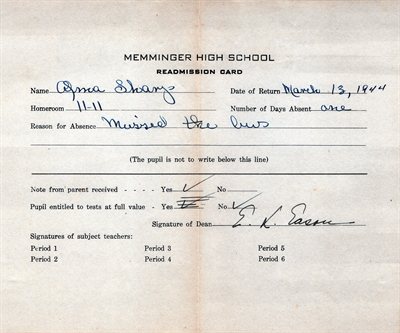 MEMMINGER HIGH SCHOOL
READMISSION CARD
Name Alma Sharp Date of Return March 13, 1944
Homeroom 11-11 Number of Days Absent one
Reason for Absence Missed the bus
(The pupil is not to write below this line)
Note from parent received - - - - Yes ✓ No
Pupil entitled to tests at full value - Yes ✓ No ✓
Signature of Dean E. K. Eason
Signatures of subject teachers:
Period 1 Period 3 Period 5
Period 2 Period 4 Period 6